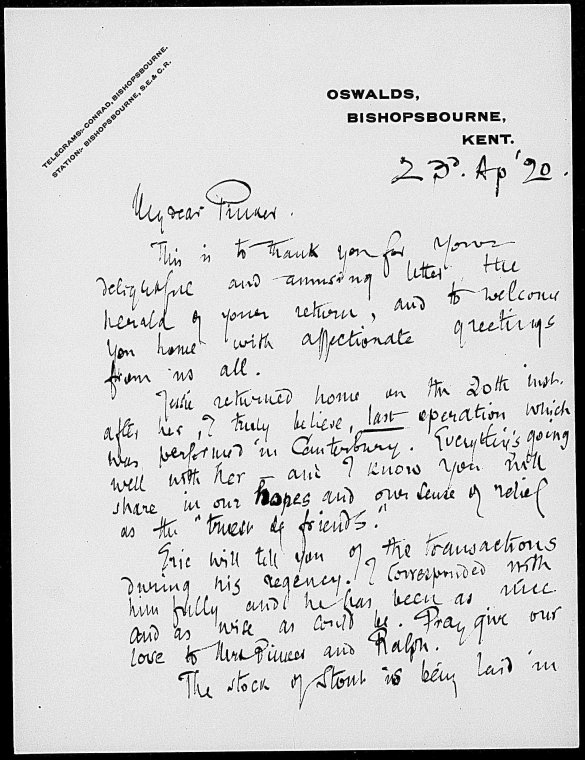 TELEGRAMS:- CONRAD, BISHOPSBOURNE.
STATION:- BISHOPSBOURNE, S.E. & C.R.
OSWALDS,
BISHOPSBOURNE,
KENT.
23d. Ap '20.
My dear Pinker.
This is to thank you for your
delightful and amusing letter, the
herald of your return, and to welcome
you home with affectionate greetings
from us all.
Jessie returned home on the 20th inst.
after her, I truly believe, last operation which
was performed in Canterbury. Everything's going
well with her and I know you will
share in our hopes and our sense of relief
as the "truest of friends."
Eric will tell you of the transactions
during his regency. I corresponded with
him fully and he has been as nice
and as wise as could be. Pray give our
love to Mrs Pinker and Ralph.
The stock of Stout is being laid in